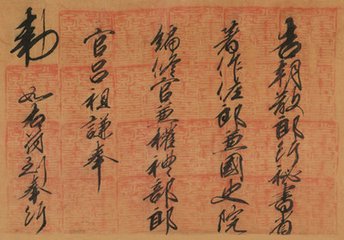 告朝散郎行秘書省
著作佐郎兼國史院
編修官兼權禮部郎
官呂祖謙奉
勅如右符到奉行